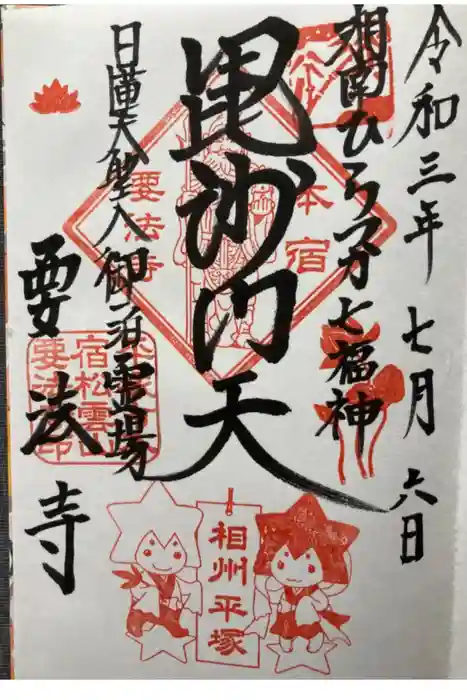 令和三年七月六日
相南ひらつか七福神
毘沙門天
日蓮大聖人御泊霊場
要法寺
本宿
要法寺
宿松雲山
要法印
相州平塚